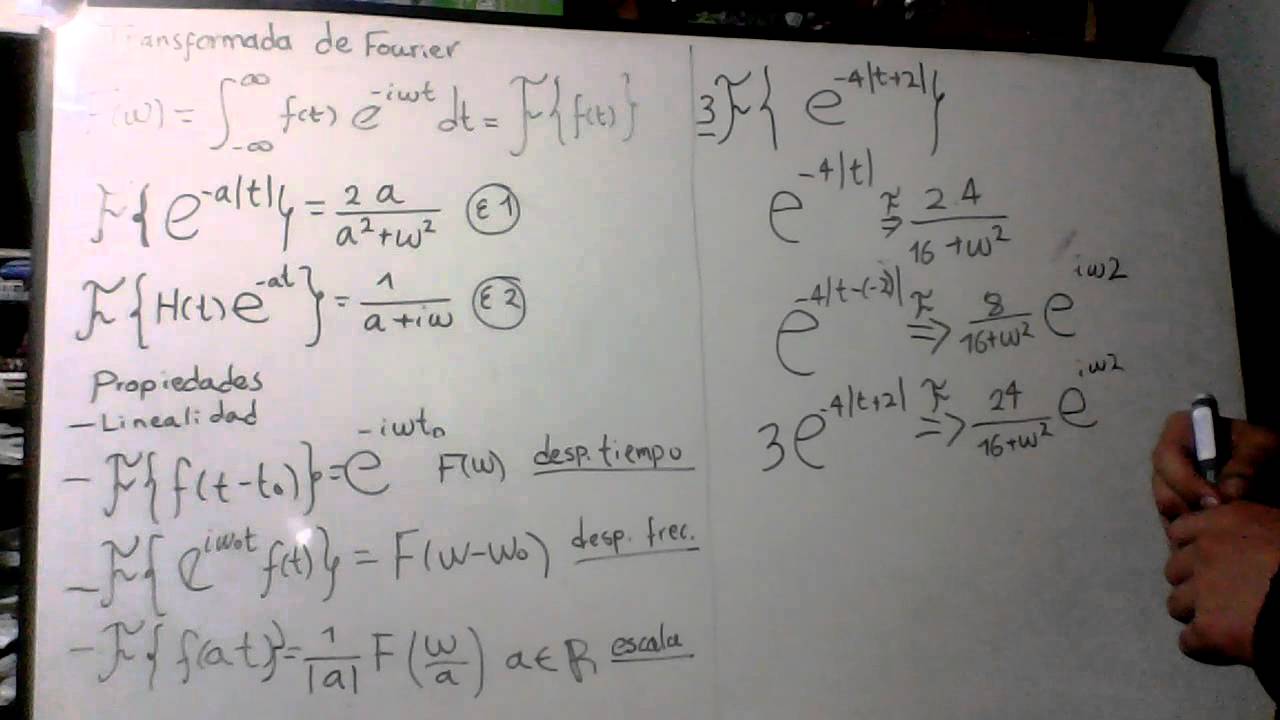 Transformada de Fourier
F(w) = ∫_{-∞}^{∞} f(t) e^{-iwt} dt = F{f(t)}
F{e^{-a|t|}} = 2a/(a²+w²) (E1)
F{H(t)e^{-at}} = 1/(a+iw) (E2)
Propiedades
-Linealidad
-F{f(t-t₀)} = e^{-iwt₀} F(w) desp. tiempo
-F{e^{iw₀t} f(t)} = F(w-w₀) desp. frec.
-F{f(at)} = 1/|a| F(w/a) a∈R escala
3F{e^{-4|t+2|}}
e^{-4|t|} F⇒ 2 4/(16+w²)
e^{-4|t-(-2)|} F⇒ 8/(16+w²) e^{iw2}
3e^{-4|t+2|} F⇒ 24/(16+w²) e^{iw2}